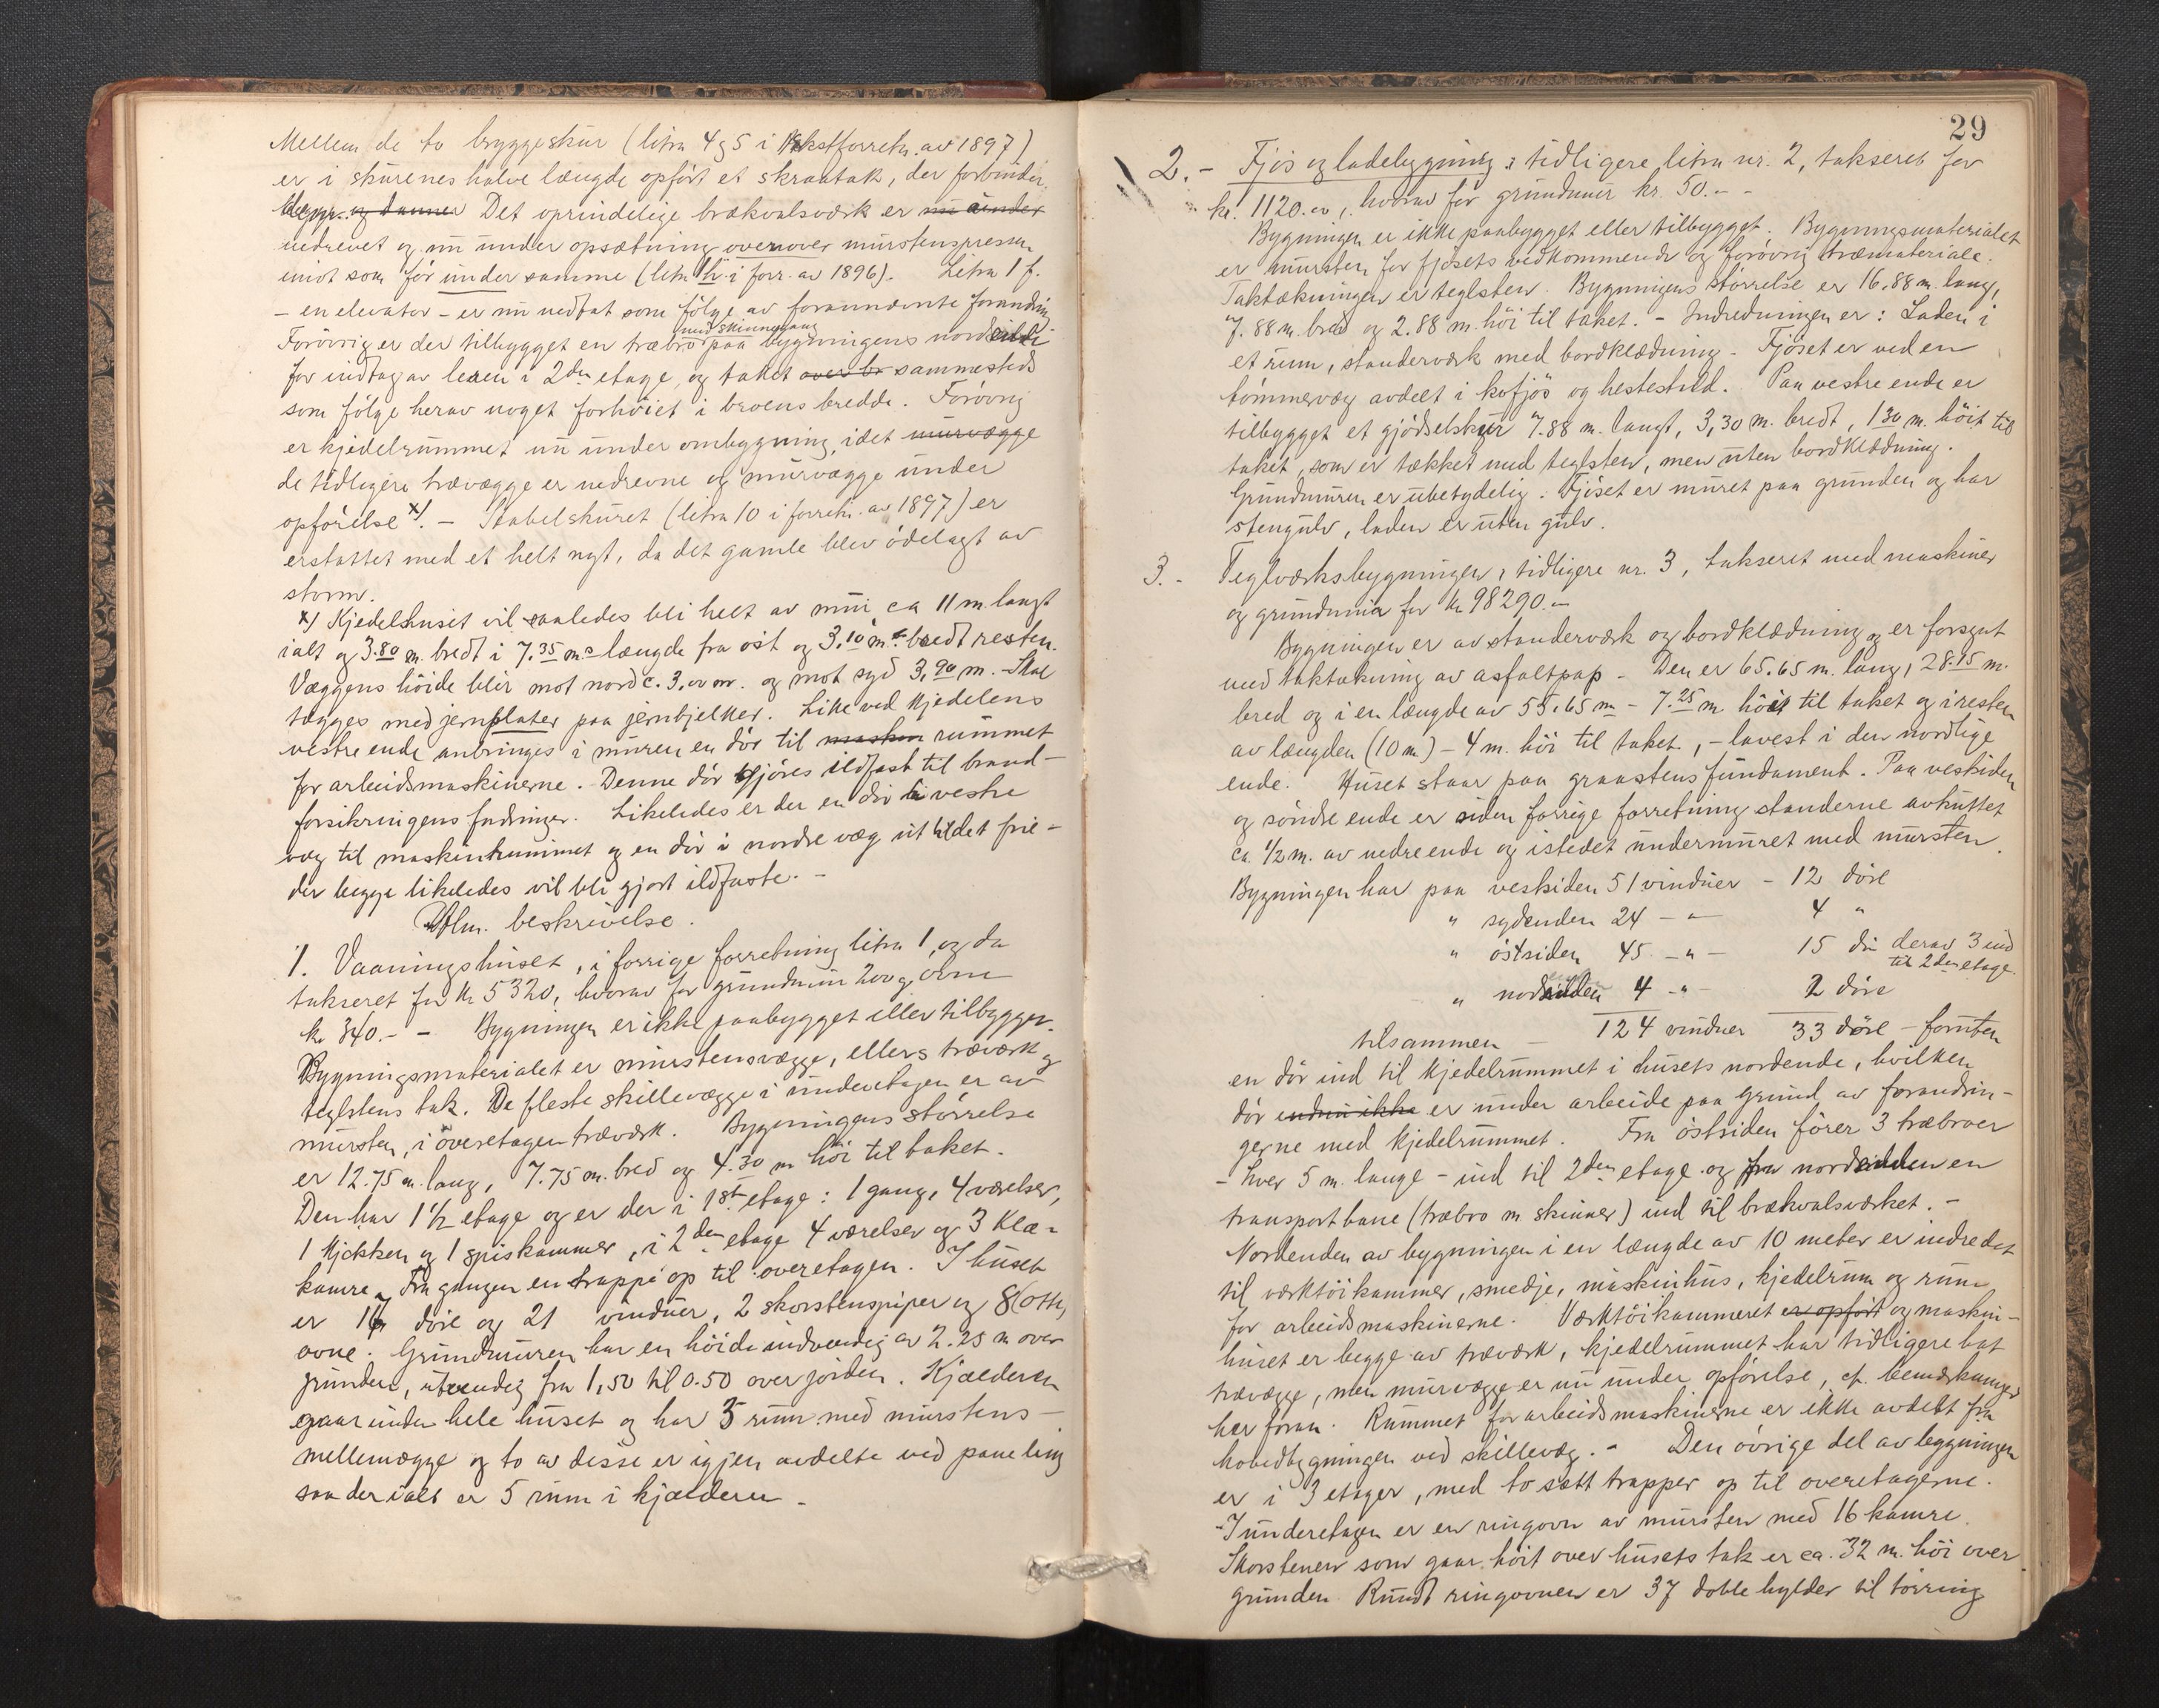 Mellem de to bryggeskur (litra 4 og 5 i takstforretn. av 1897)
er i skurenes halve længde opført et skraatak, der forbinder
begge. og danner Det oprindelige brækvalsværk er nu under
nedrevet og nu under opsætning ovenover murstenspressen
imot som før under samme (litra h. i forr. av 1896). Litra 1 f.
– en elevator – er nu nedtat som følge av forannævnte forandring
med skinnegang
Forøvrig er der tilbygget en træbro paa bygningens nordende
for indtag av leren i 2den etage, og taket over br sammesteds
som følge herav noget forhøiet i broens bredde. Forøvrig
er kjedelrummet nu under ombygning, idet murvægge
de tidligere trævægge er nedrevne og murvægge under
opførelse x). – Stabelskuret (litra 10 i forretn. av 1897) er
erstattet med et helt nyt, da det gamle blev ødelagt av
storm.
x) Kjedelhuset vil saaledes bli helt av mur ca 11 m. langt
ialt og 3.80 m. bredt i 7.35 m.s længde fra øst og 3.10 m. bredt resten.
Væggens høide blir mot nord c. 3.00 m. og mot syd 3.90 m. – Skal
tægges med jernplater paa jernbjelker. Like ved kjedelens
vestre ende anbringes i muren en dør til maskin rummet
for arbeidsmaskinerne. Denne dør gjøres ildfast til brand-
forsikringens fordringer. Likeledes er der en dør i vestre
væg til maskinrummet og en dør i nordre væg ut til det frie –
der begge likeledes vil bli gjort ildfaste. –
Alm. beskrivelse.
1. Vaaningshuset, i forrige forretning litra 1, og da
takseret for kr 5320, hvorav for grundmur 200 og ovne
kr 340. – – Bygningen er ikke paabygget eller tilbygget.
Bygningsmaterialet er murstensvægge, ellers træverk og
teglstens tak. De fleste skillevægge i underetagen er av
mursten, i overetagen træværk. Bygningens størrelse
er 12.75 m. lang, 7.75 m. bred og 4.30 m høi til taket.
Den har 1 1/2 etage og er der i 1ste etage: 1 gang, 4 værelser,
1 kjøkken og 1 spiskammer, i 2den etage 4 værelser og 3 klæ-
kamre. Fra gangen en trappe op til overetagen. I huset
er 16 døre og 21 vinduer, 2 skorstenspiper og 8 (otte)
ovne. Grundmuren har en høide indvendig av 2.25 m over
grunden, utvendig fra 1,50 til 0.50 over jorden. Kjælderen
gaar under hele huset og har 3 rum med murstens-
mellemvægge og to av disse er igjen avdelte ved paneling
saa der ialt er 5 rum i kjælderen –
29
2. – Fjøs og ladebygning: tidligere litra nr. 2, takseret for
kr. 1120.00, hvorav for grundmur kr. 50. – –
Bygningen er ikke paabygget eller tilbygget. Bygningsmaterialet
er mursten for fjøsets vedkommende og forøvrig træmateriale.
Taktækningen er teglsten. Bygningens størrelse er 16.88 m. lang,
7.88 m. bred og 2.88 m. høi til taket. – Indredningen er: Laden i
et rum, standerværk med bordklædning – Fjøset er ved en
tømmervæg avdelt i kofjøs og hestestald. Paa vestre ende er
tilbygget et gjødselskur 7.88 m. langt, 3,30 m. bredt, 1.30 m. høit til
taket, som er tækket med teglsten, men uten bordklædning.
Grundmuren er ubetydelig. Fjøset er muret paa grunden og har
stengulv, laden er uten gulv.
3. – Teglværksbygningen, tidligere nr. 3, takseret med maskiner
og grundmur for kr 98290. –
Bygningen er av standerværk og bordklædning og er forsynt
med taktækning av asfaltpap – Den er 65.65 m. lang, 28.15 m.
bred og i en længde av 55.65 m – 7.25 m. høit til taket og i resten
av længden (10 m.) – 4 m. høi til taket, – lavest i den nordlige
ende. Huset staar paa graastens fundament. Paa vestsiden
og søndre ende er siden forrige forretning standerne avkuttet
ca. 1/2 m. av nedre ende og istedet undermuret med mursten.
Bygningen har paa vestsiden 51 vinduer – 12 døre
" sydenden 24 – " – 4 "
" østsiden 45 – " – 15 dør derav 3 ind
til 2den etage.
" nordenden 4 – " – 2 døre
tilsammen – 124 vinduer 33 døre – foruten
en dør ind til kjedelrummet i husets nordende, hvilken
dør endnu ikke er under arbeide paa grund av forandrin-
gerne med kjedelrummet. Fra østsiden fører 3 træbroer
– hver 5 m. lange – ind til 2den etage og fra nordenden en
transportbane (træbro m. skinner) ind til brækvalsværket. –
Nordenden av bygningen i en længde av 10 meter er indredet
til værktøikammer, smedje, maskinhus, kjedelrum og rum
for arbeidsmaskinerne. Værktøikammeret er opført og maskin-
huset er begge av træværk, kjedelrummet har tidligere hat
trævægge, men murvægge er nu under opførelse, cf. bemerkninger
her foran. Rummet for arbeidsmaskinerne er ikke avdelt fra
hovedbygningen ved skillevæg. – Den øvrige del av bygningen
er i 3 etager, med to sætt trapper op til overetagerne.
– I underetagen er en ringovn av mursten med 16 kamre.
Skorstenen som gaar høit over husets tak er ca. 32 m. høi over
grunden Rundt ringovnen er 37 doble hylder til tørring